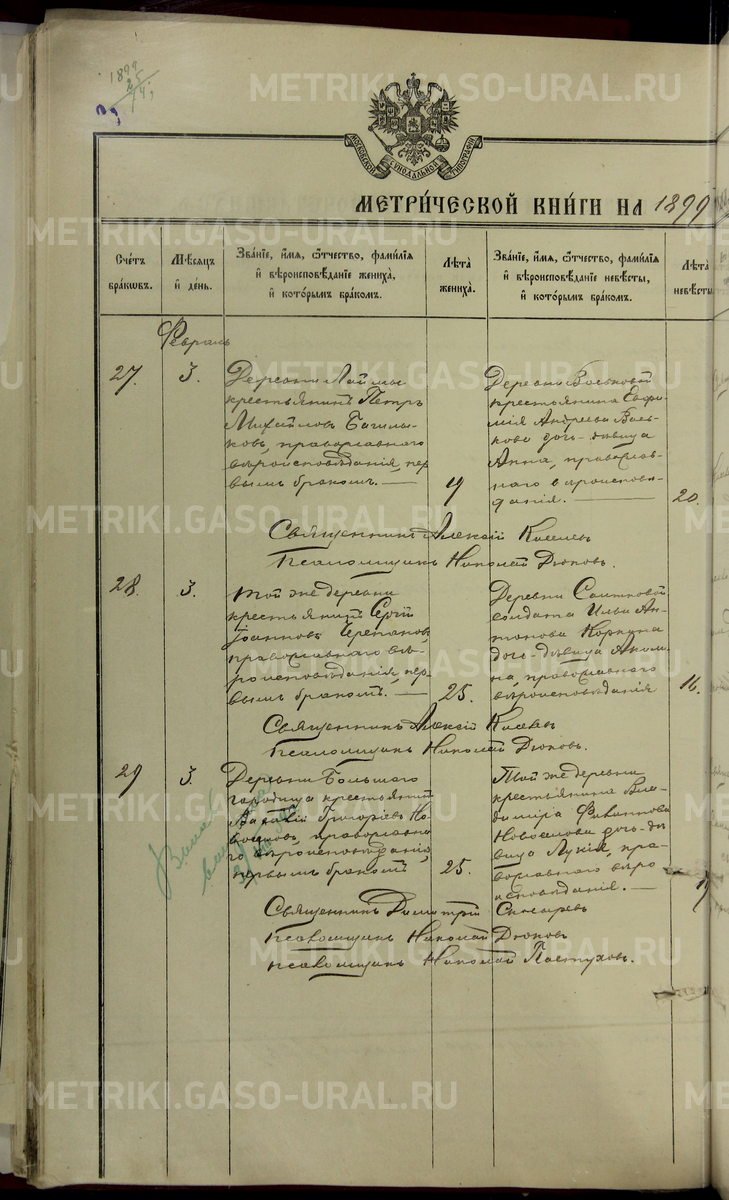 1899
25
METRIKI.GASO-URAL.RU
МОСКОВСКОЙ СѴНОДАЛЬНОЙ ТИПОГРАФІИ
МЕТРИ́ЧЕСКОЙ КНИ́ГИ НА 1899
Сче́тъ бра́кωвъ.
Мѣ́сѧцъ и҆ де́нь.
Зва́нїе, и҆́мѧ, ѻ҆́тчество, фами́лїѧ и҆ вѣроисповѣ́данїе жениха̀, и҆ кото́рымъ бра́комъ.
Лѣ́та жениха̀.
Зва́нїе, и҆́мѧ, ѻ҆́тчество, фами́лїѧ и҆ вѣроисповѣ́данїе невѣ́сты, и҆ кото́рымъ бра́комъ.
Лѣ́та невѣ́сты
Февраль
27.
3.
Деревни Лаймы
крестьянинъ Петръ
Михайловъ
православнаго
вѣроисповѣданія, пер
вымъ бракомъ. —
19
Деревни
крестьянина Евфи
мія Андреева Вась
кова дочь-дѣвица
Анна, православ-
наго вѣроисповѣ-
данія. —
20.
Священникъ Алексій Киселевъ
Псаломщикъ Николай Дюковъ.
28.
3.
Той же деревни
крестьянинъ Сергій
Іоанновъ Черепановъ,
православнаго вѣ-
роисповѣданія, пер-
вымъ бракомъ. —
25.
Деревни
солдата Ильи Ан-
тонова
дочь-дѣвица
православнаго
вѣроисповѣданія
16.
Священникъ Алексій Киселевъ
Псаломщикъ Николай Дюковъ.
29
3.
Деревни Большаго
городища крестьянинъ
Григорьевъ Но-
воселовъ, православна
го вѣроисповѣданія,
первымъ бракомъ
25.
Той же деревни
крестьянина Вла-
диміра
Новоселова дочь-дѣ-
вица Лукія, пра-
вославнаго вѣро
исповѣданія. —
19
Священникъ Димитрій Слюсаревъ
Псаломщикъ Николай Дюковъ
Псаломщикъ Николай Пастуховъ.